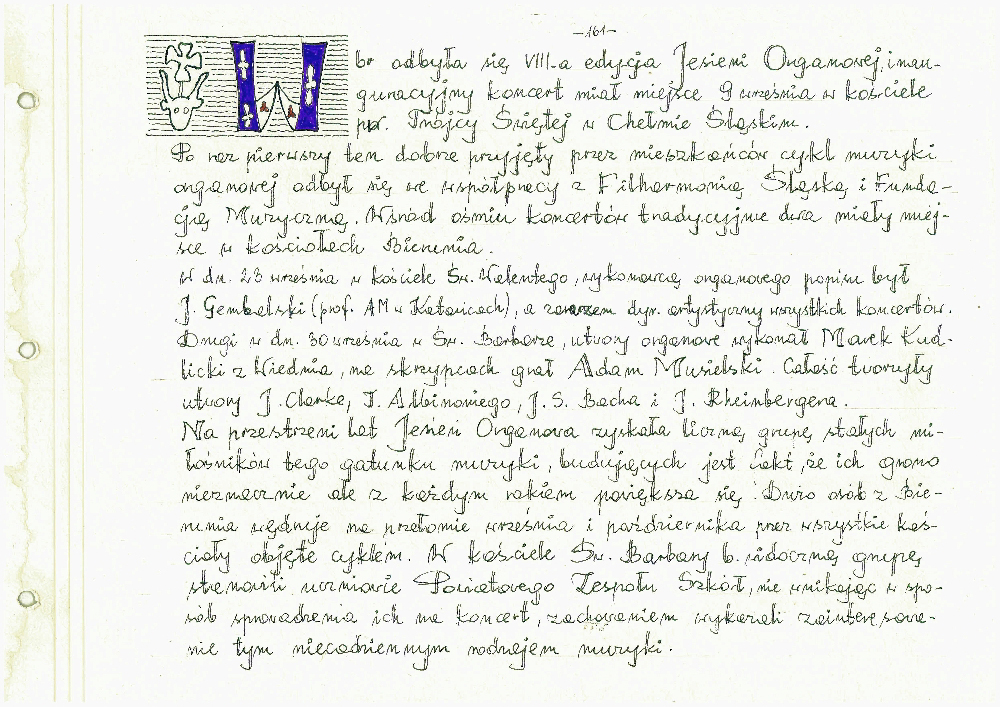 -161-
W br odbyła się VIII-a edycja Jesieni Organowej, inau-
guracyjny koncert miał miejsce 9 września w kościele
pw. Trójcy Świętej w Chełmie Śląskim.
Po raz pierwszy ten dobrze przyjęty przez mieszkańców cykl muzyki
organowej odbył się we współpracy z Filharmonią Śląską i Funda-
cją Muzyczną. Wśród ośmiu koncertów tradycyjnie dwa miały miej-
sce w kościołach Bierunia.
W dn. 23 września w kościele Św. Walentego, wykonawcą organowego popisu był
J. Gembalski (prof. AM w Katowicach), a zarazem dyr. artystyczny wszystkich koncertów.
Drugi w dn. 30 września w Św. Barbarze, utwory organowe wykonał Marek Kud-
licki z Wiednia, na skrzypcach grał Adam Musialski. Całość tworzyły
utwory J. Clarke, T. Albinoniego, J. S. Bacha i J. Rheinbergera.
Na przestrzeni lat Jesień Organowa zyskała liczną grupę stałych mi-
łośników tego gatunku muzyki, budującym jest fakt, że ich grono
nieznacznie ale z każdym rokiem powiększa się. Dużo osób z Bie-
runia wędruje na przełomie września i października przez wszystkie koś-
cioły objęte cyklem. W kościele Św. Barbary b. widoczną grupę
stanowili uczniowie Powiatowego Zespołu Szkół, nie wnikając w spo-
sób sprowadzenia ich na koncert, zachowaniem wykazali zainteresowa-
nie tym niecodziennym rodzajem muzyki.